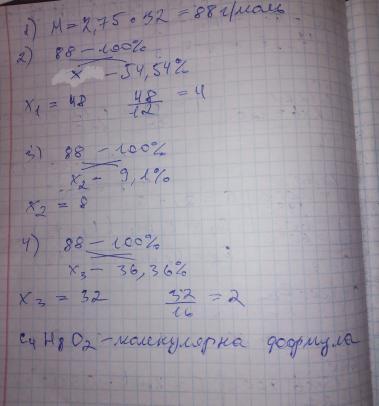 1) M = 2,75 • 32 = 88 г/моль
2) 88 - 100%
x - 54,54%
x₁ = 48 48/12 = 4
3) 88 - 100%
x₂ - 9,1%
x₂ = 8
4) 88 - 100%
x₃ - 36,36%
x₃ = 32 32/16 = 2
C₄H8O₂ - молекулярна формула